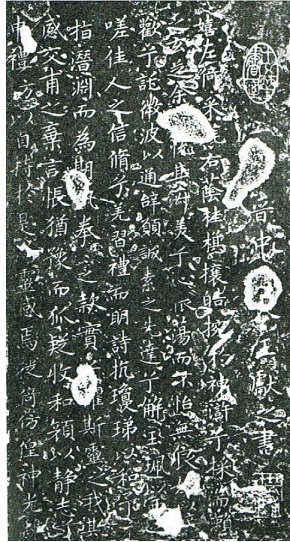 晉中令王獻之書
嬉左倚采旄右蔭桂旗攘皓捥於神滸兮採湍瀨
之玄芝余情悅其淑美兮心振蕩而不怡無良
歡兮託微波以通辭願誠素之先達兮解玉珮
嗟佳人之信脩兮羌習禮而明詩抗瓊珶以和予
指潛淵而為期執拳之款實懼斯靈之我欺
感交甫之棄言悵猶豫而狐疑收和顏以靜志兮
申禮防以自持於是洛靈感焉徙倚傍偟神光